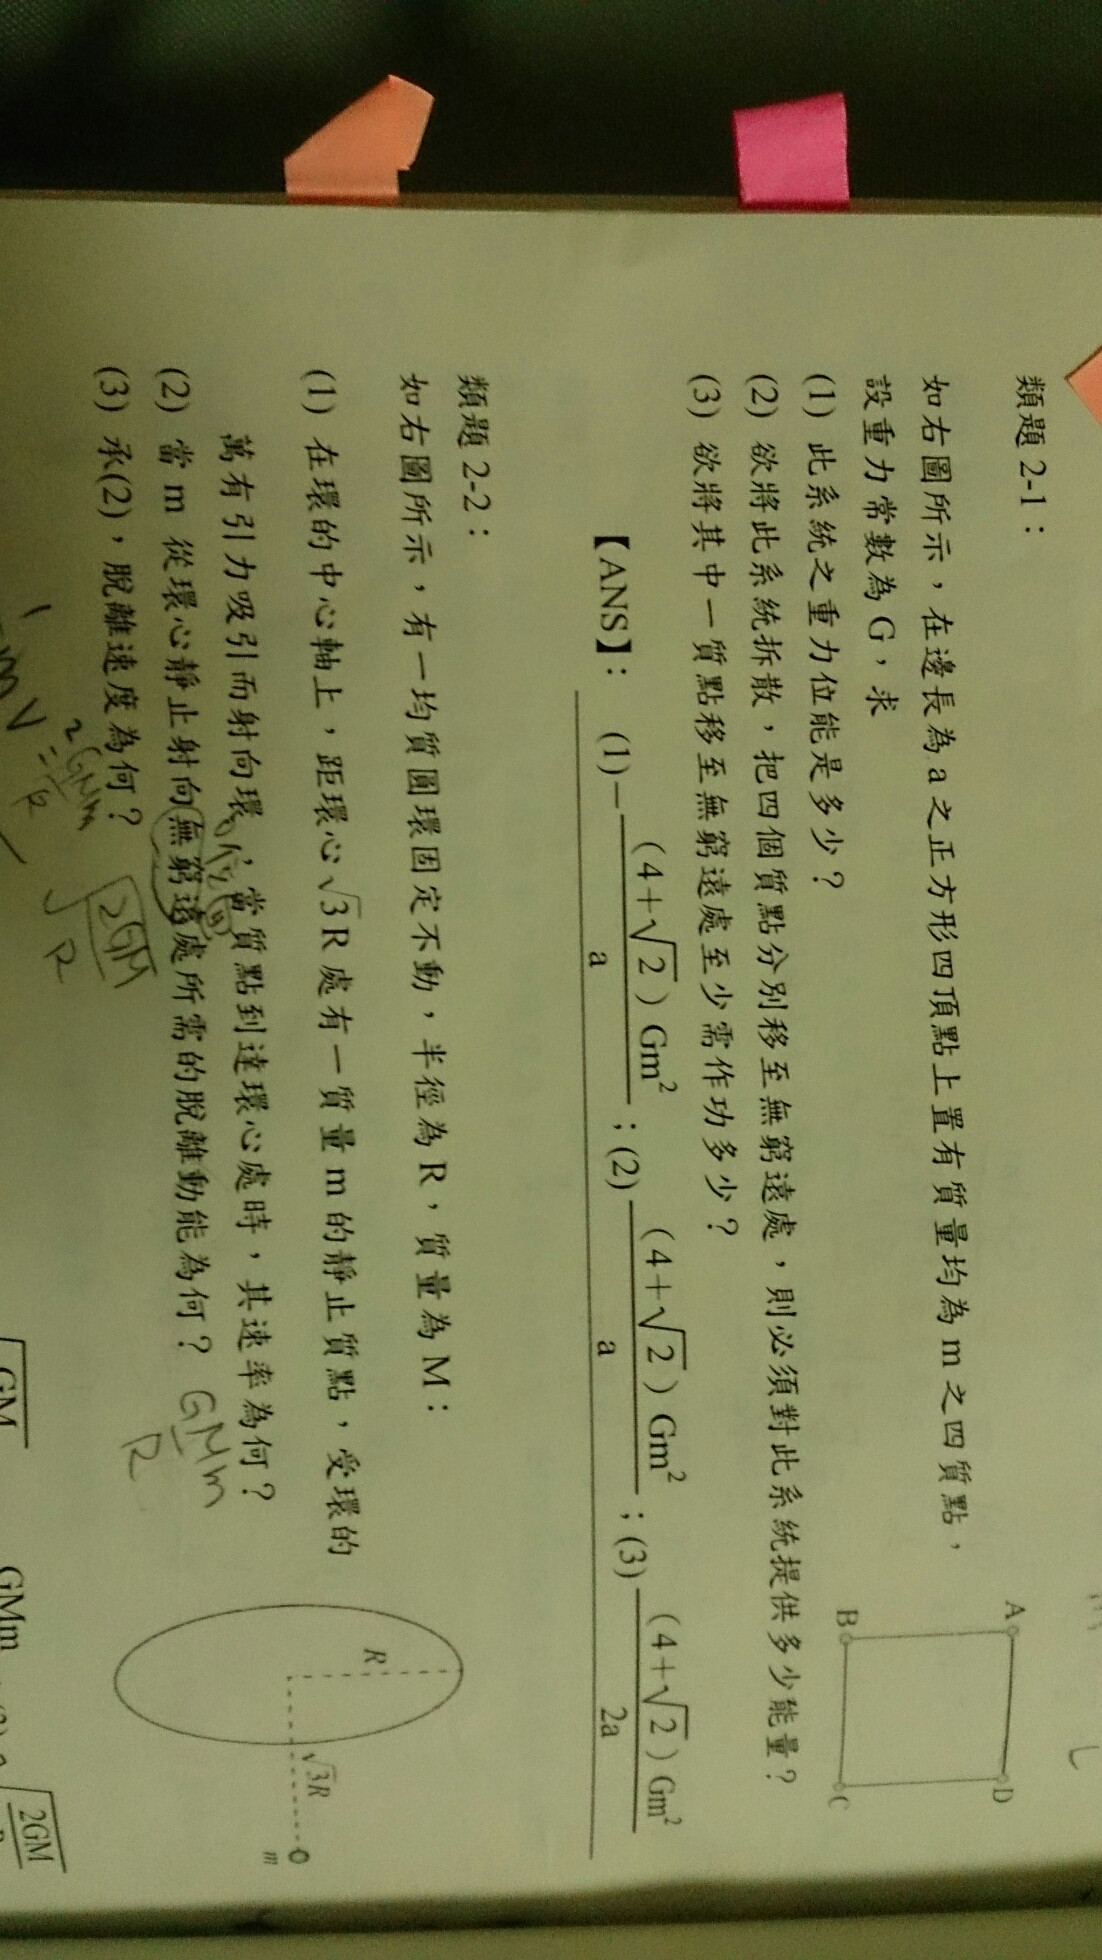 類題 2-1：
如右圖所示，在邊長為 a 之正方形四頂點上置有質量均為 m 之四質點，
設重力常數為 G，求
(1) 此系統之重力位能是多少？
(2) 欲將此系統拆散，把四個質點分別移至無窮遠處，則必須對此系統提供多少能量？
(3) 欲將其中一質點移至無窮遠處至少需作功多少？
A
D
B
C
【ANS】： (1)－(4＋√2)Gm²/a ；(2) (4＋√2)Gm²/a ；(3) (4＋√2)Gm²/2a
類題 2-2：
如右圖所示，有一均質圓環固定不動，半徑為 R，質量為 M：
(1) 在環的中心軸上，距環心 √3 R 處有一質量 m 的靜止質點，受環的
萬有引力吸引而射向環心，當質點到達環心處時，其速率為何？
(2) 當 m 從環心靜止射向無窮遠處所需的脫離動能為何？ GMm/R
(3) 承(2)，脫離速度為何？
√2GM/R
R
√3R
m
√GM
GMm
√2GM